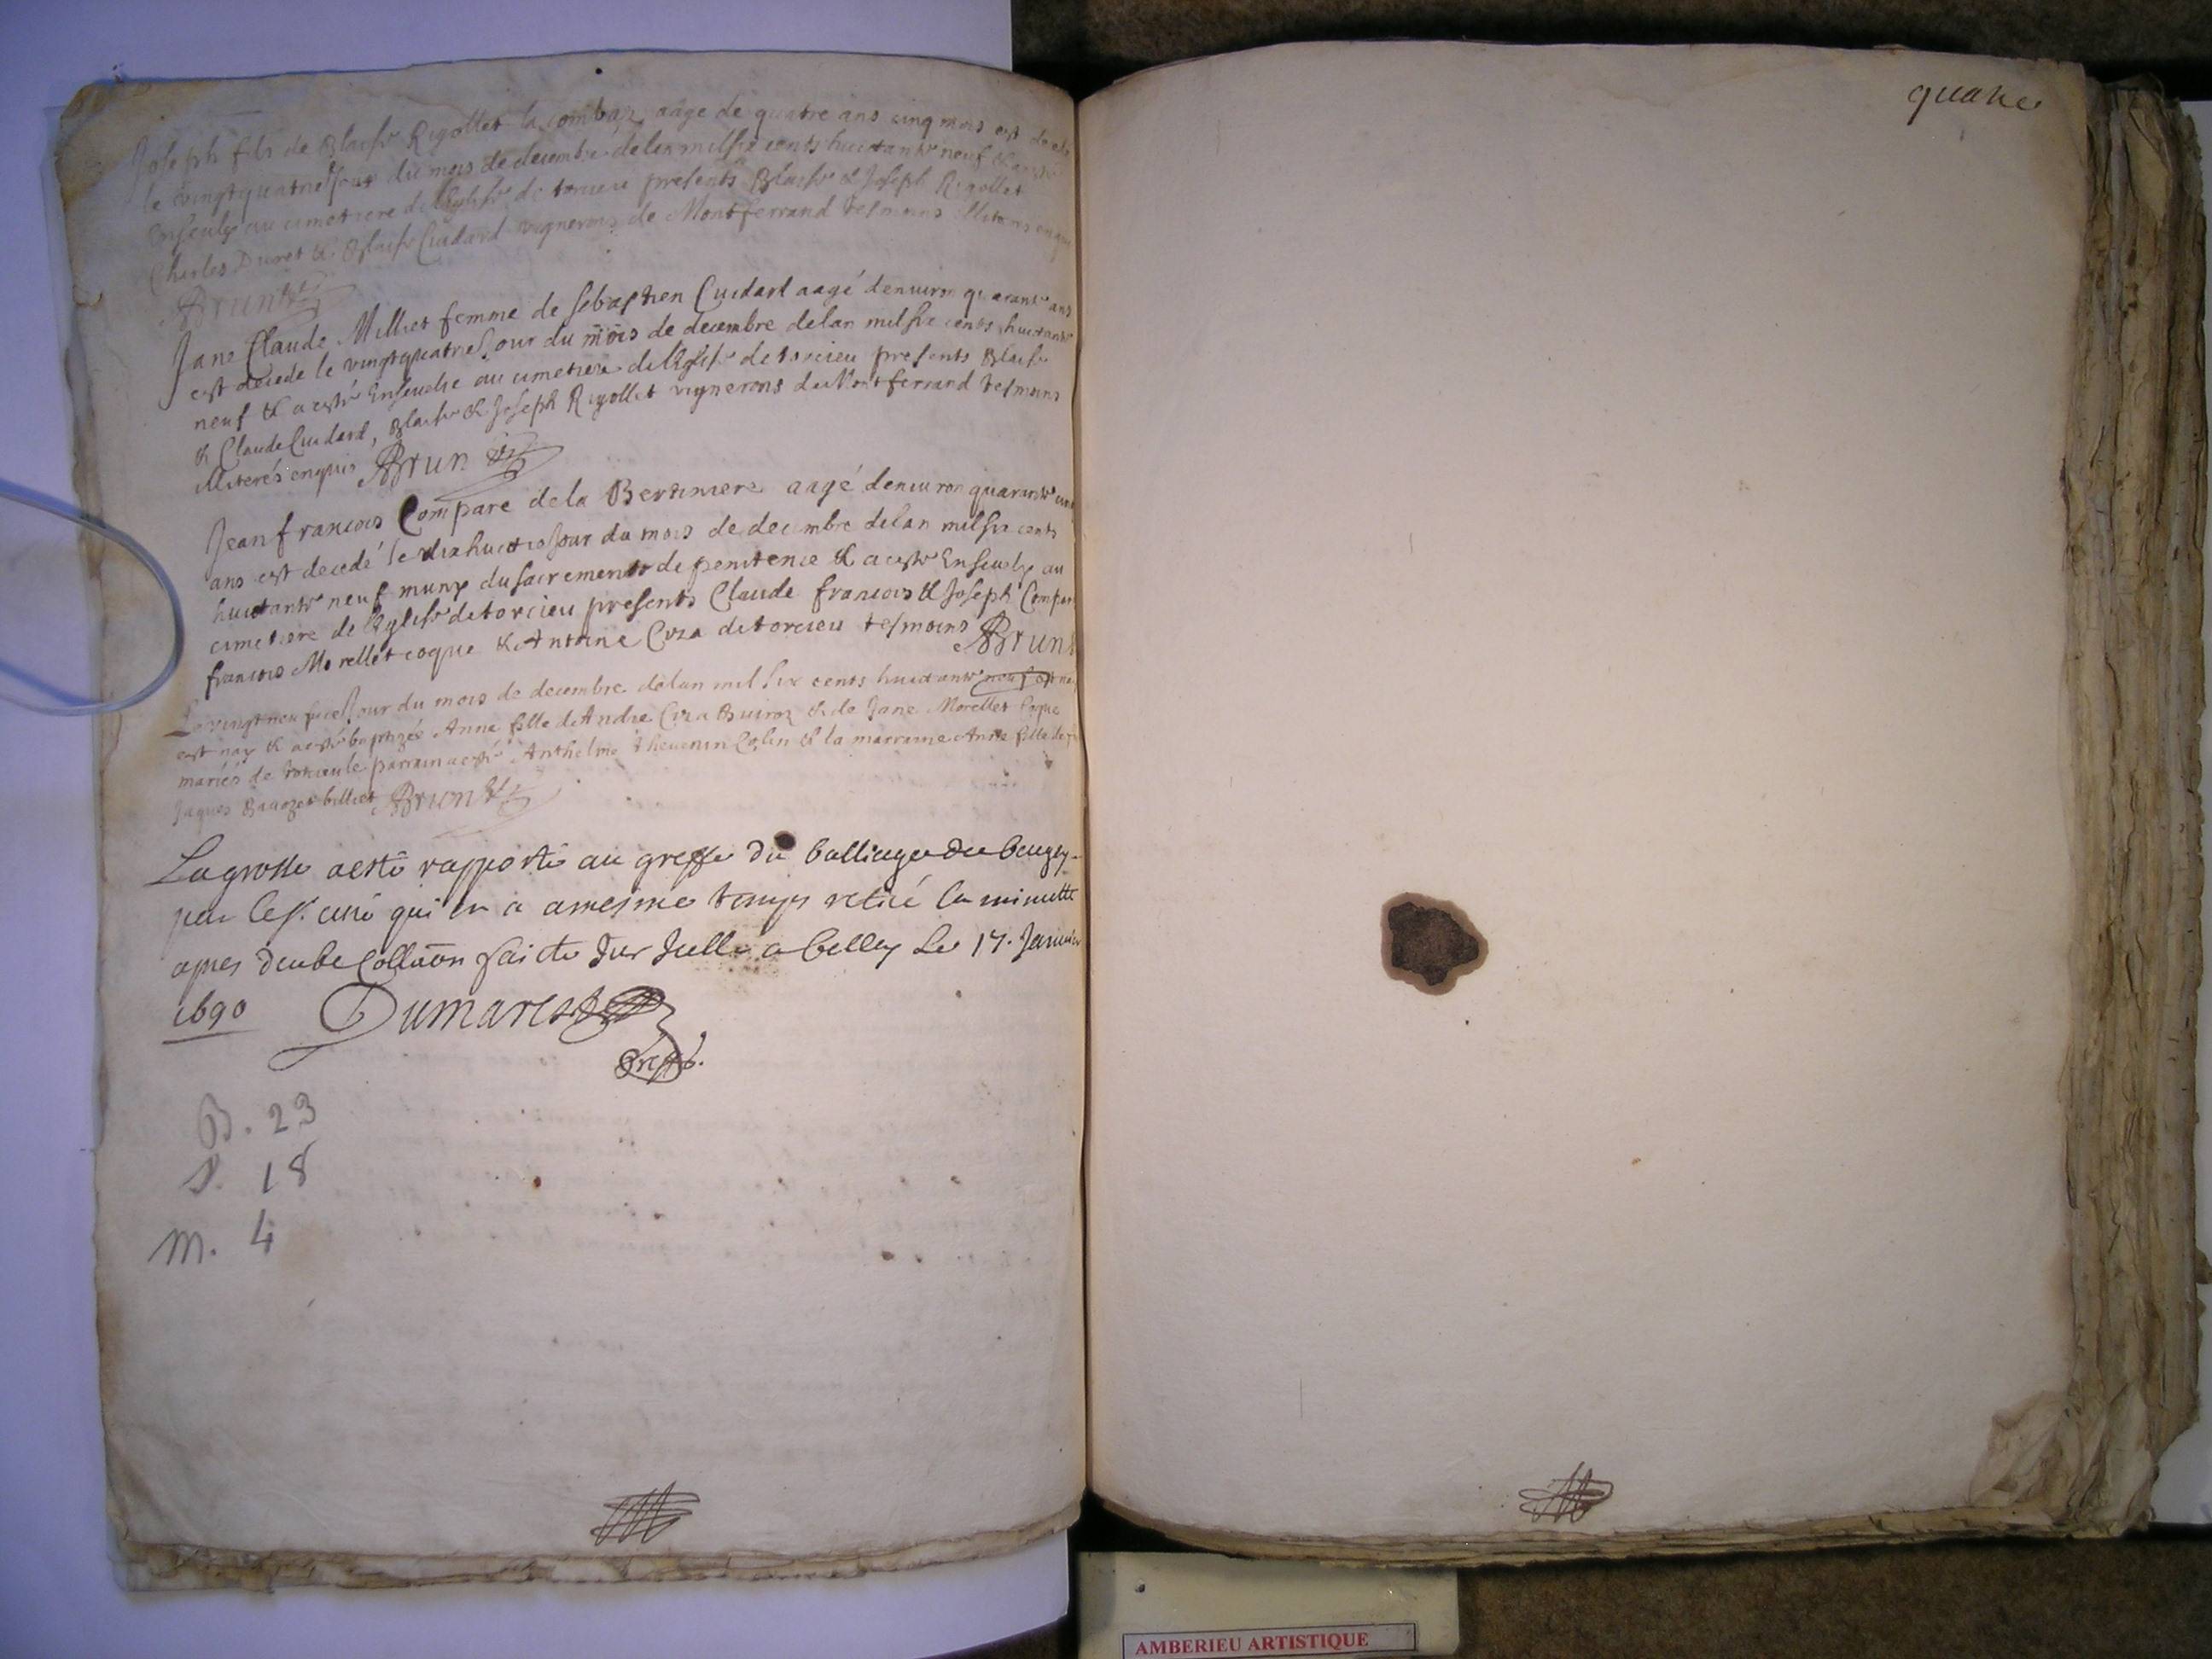 Joseph fils de Blaise Rigollet la combaz aagé de quatre ans cinq mois est
le vingtquatriesjour du mois de decembre delan mil six cents huictante neuf &
Enseuely au cimetiere de leglise de torcieu presents Blaise & Joseph Rigollet
Charles Duret & Blaise Cuidard vignerons de Montferrand tesmoins
Brun
Jane Claude Milliet femme de sebastien Cuidard aagé denuiron quarante ans
est decede le vingtquatriesjour du mois de decembre delan mil six cents huictante
neuf & a esté Enseuelie au cimetiere de leglise de torcieu presents Blaise
& Claude Cuidard, Blaise & Joseph Rigollet vignerons de Montferrand tesmoins
illiterés enquis Brun
Jean francois Compare de la Bertiniere aagé denuiron quarante
ans est decedé le dixhuictiesjour du mois de decembre delan mil six cents
huictante neuf muny du sacrement de penitence & a esté Enseuely au
cimetiere de leglise de torcieu presents Claude francois & Joseph Compare
francois Morellet coque & Antoine Cyza de torcieu tesmoins Brun
Le vingtneufuiesjour du mois de decembre delan mil six cents huictante neuf
est nay & a esté baptizée Anne fille de Andre Cyza Buiron & de Jane Morellet Coque
mariés de torcieu le parrain a esté Anthelme Theuenin Colin & la marraine Anne fille de
Jaques billiet Brun
La grosse a esté rapporté au greffe du balliage du beugey
par le sr. curé qui en a amesme temps retiré la minutte
apres deube collaōn faicte sur Jcelle a belley Le 17. Januier
1690 Dumarest
Greff.
B. 23
S. 18
M. 4
quatre
AMBERIEU ARTISTIQUE